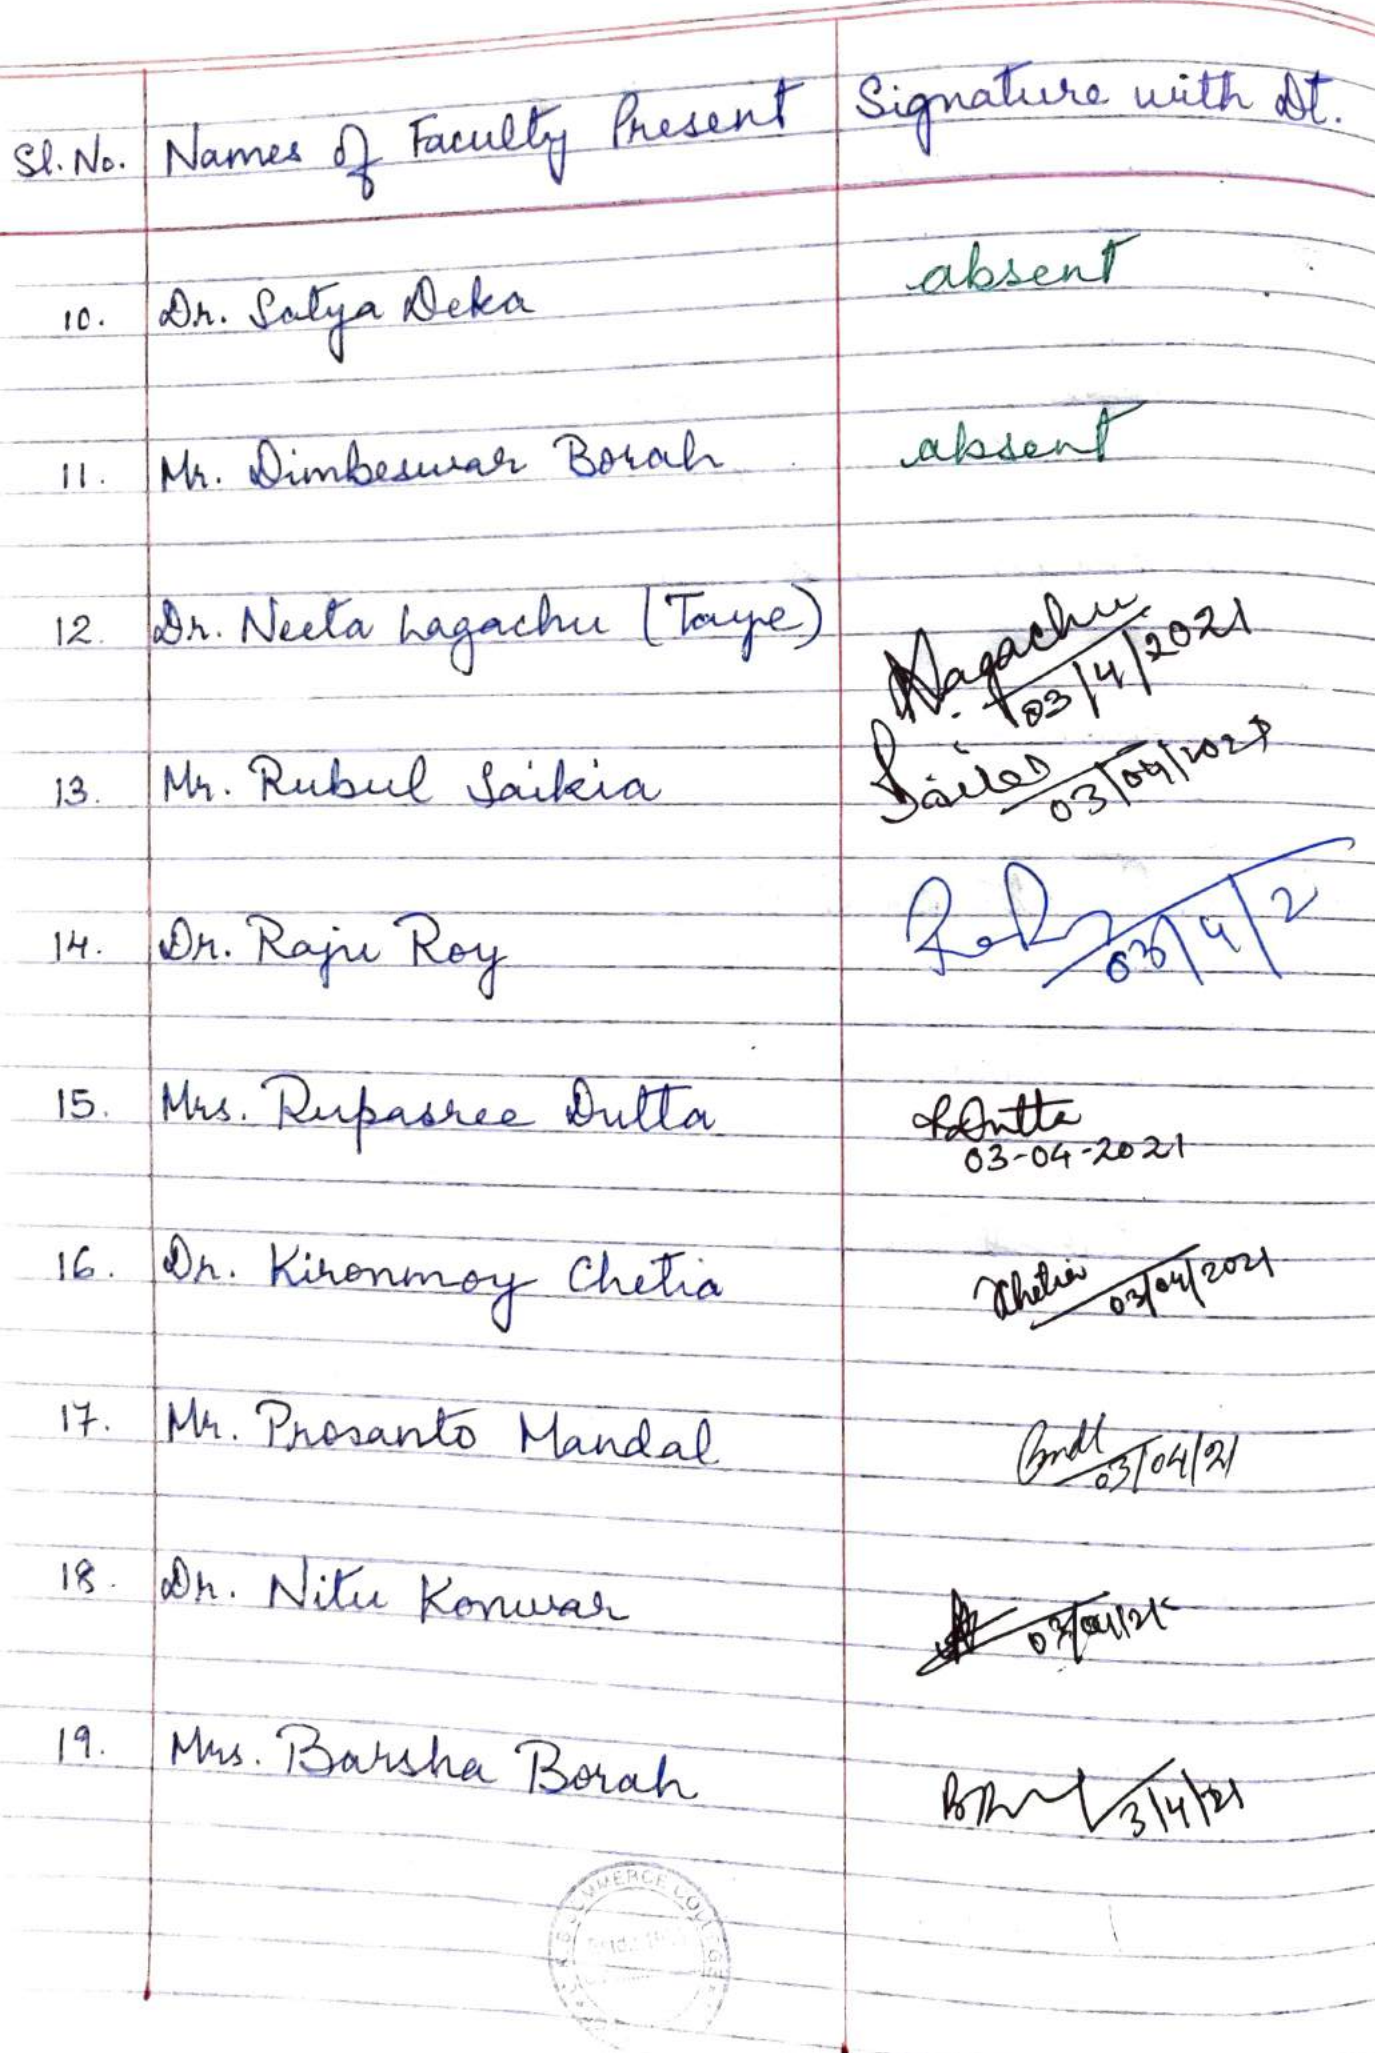 Sl. No. Names of Faculty Present Signature with Dt.
10. Dr. Satya Deka absent
11. Mr. Dimbeswar Borah absent
12. Dr. Neeta Lagachu (Taye) NLagachu 03/4/2021
13. Mr. Rubul Saikia 03/04/2021
14. Dr. Raju Roy 03/4/2
15. Mrs. Rupasree Dutta RDutta
03-04-2021
16. Dr. Kironmoy Chetia KChetia 03/04/2021
17. Mr. Prosanto Mandal 03/04/21
18. Dr. Nitu Konwar 03/04/21
19. Mrs. Barsha Borah 3/4/21
COMMERCE COLLEGE